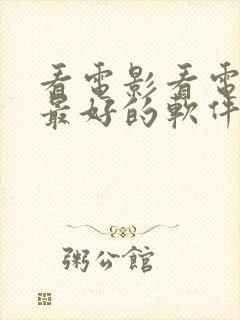 看電影看電
最好的軟件
粥公館